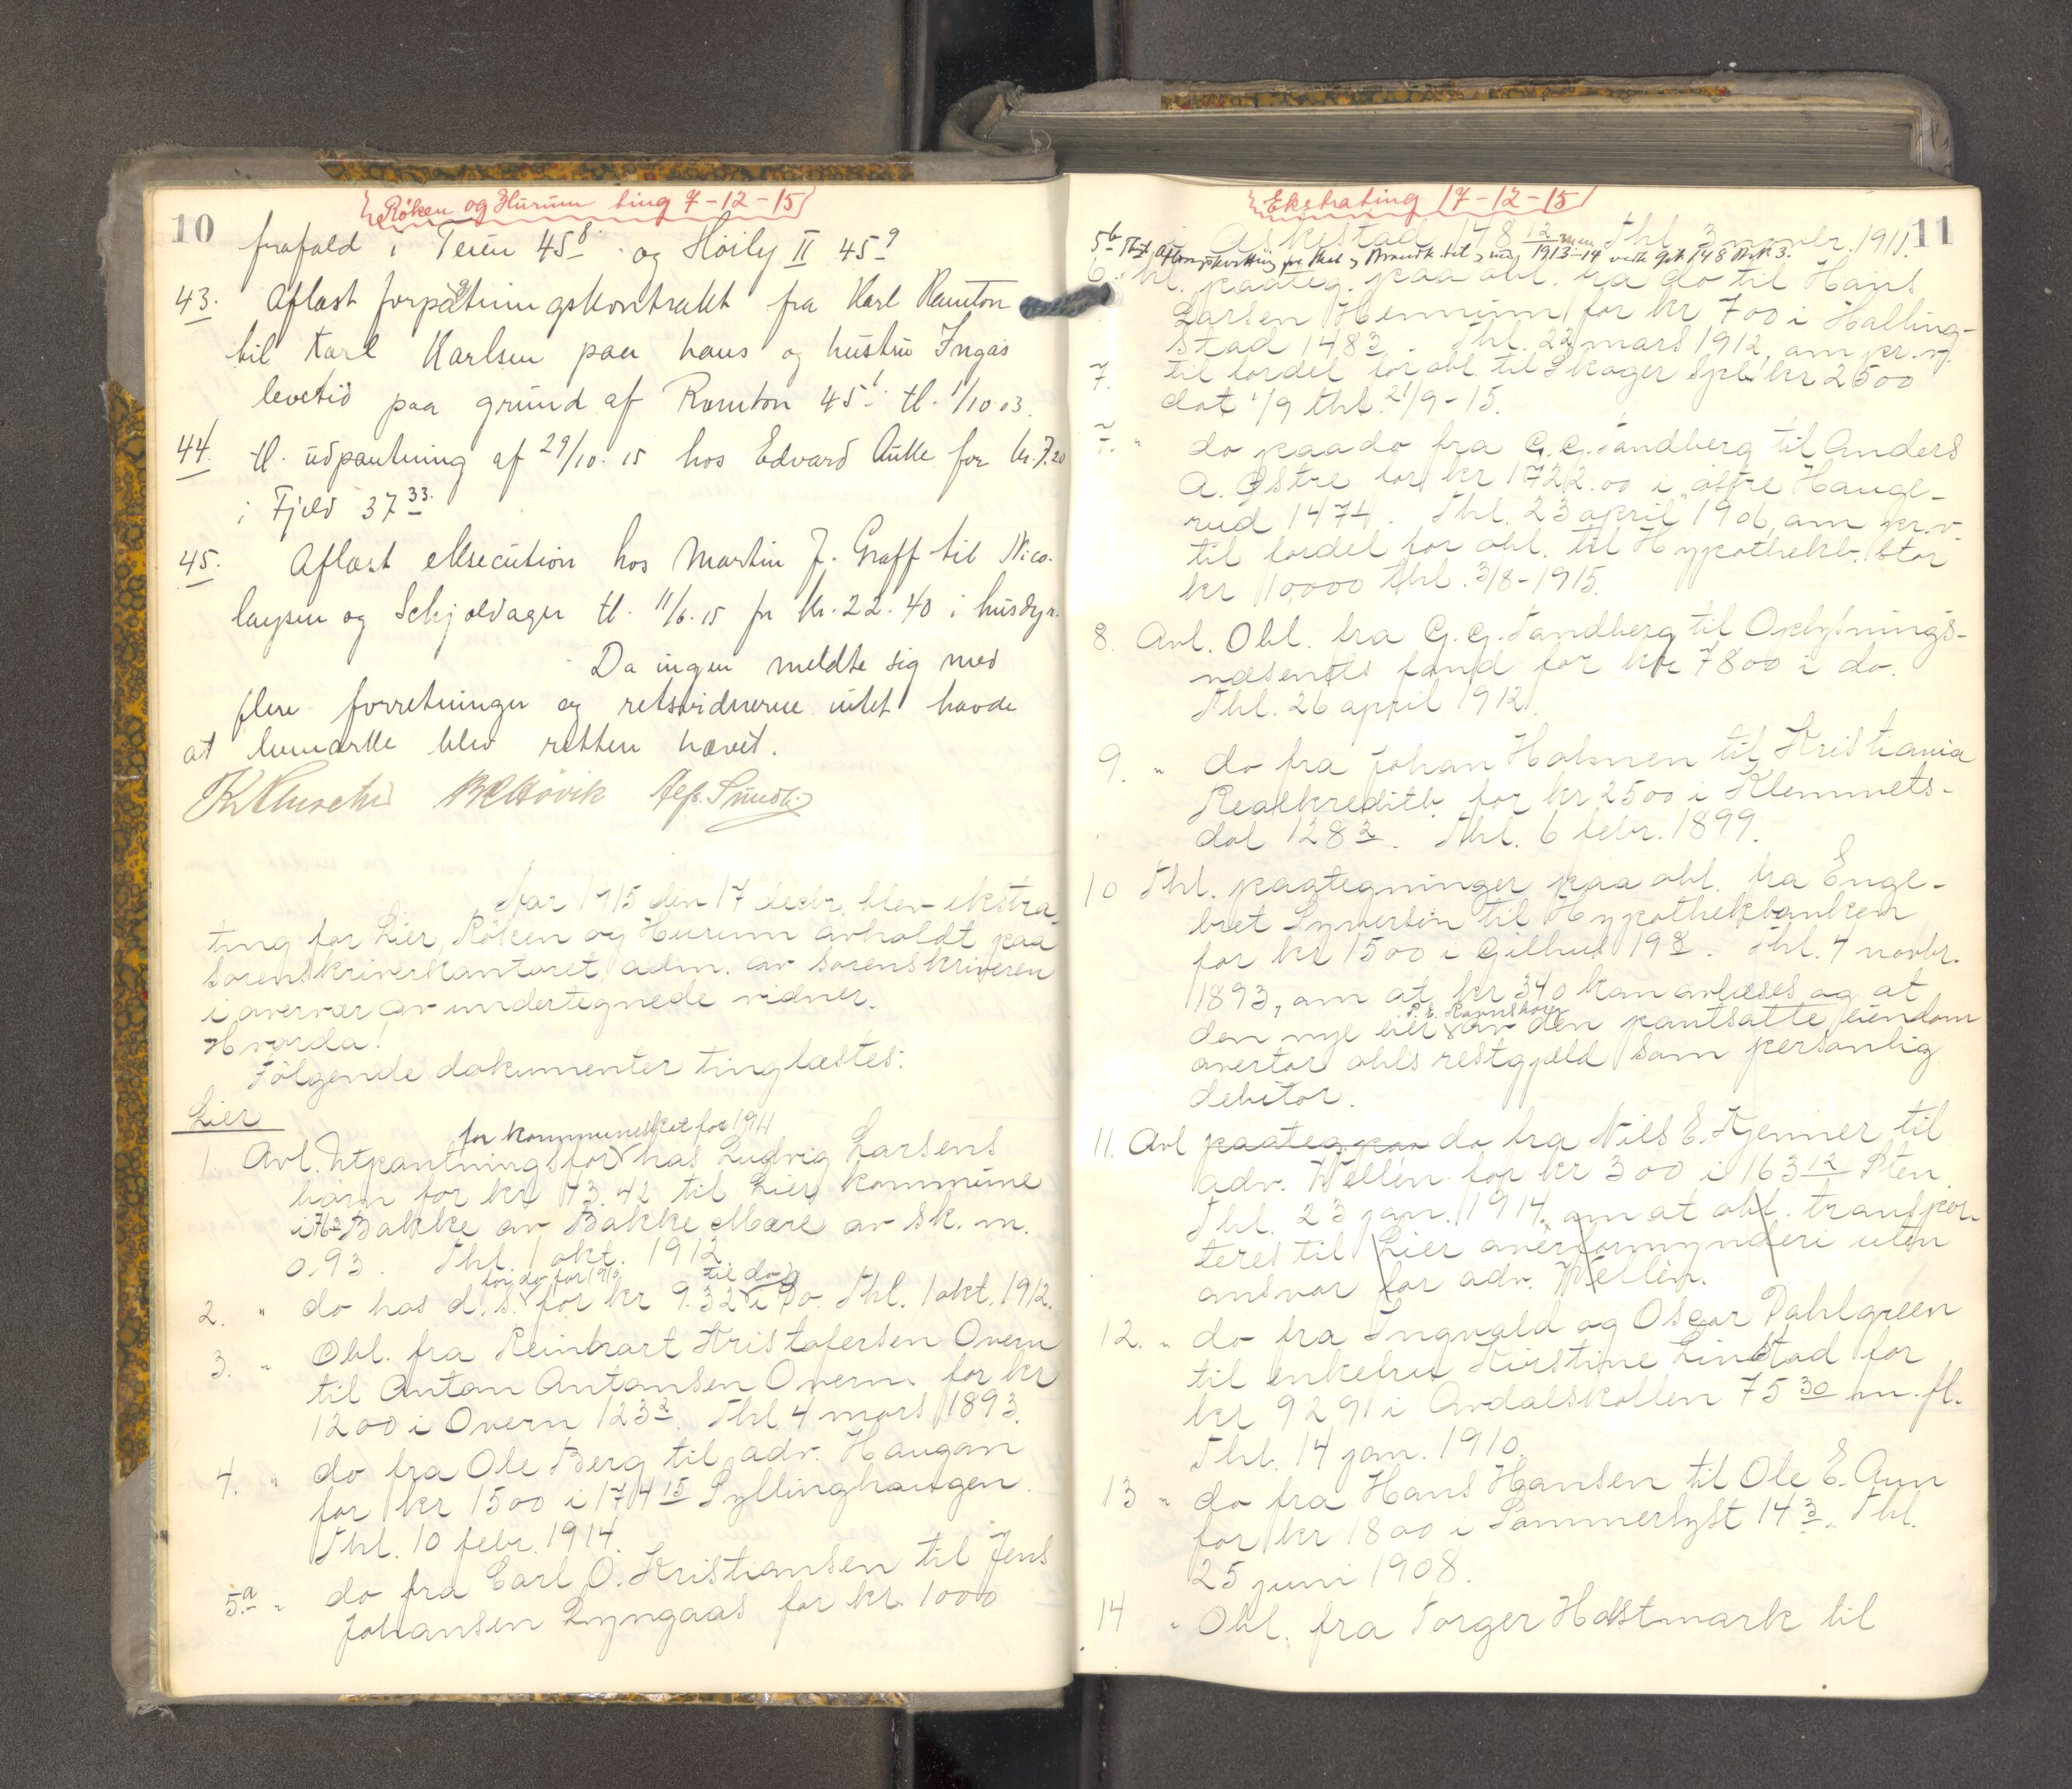 Røken og Hurum ting 7-12-15
10
frafald i Teien 45 8. og Höily II 45 9
43. Aflæst forpagtningskontrakt fra Karl Ramton
til Karl Karlsen paa hans og hustru Ingas
levetid paa grund af Ramton 45 1. tl. 1/10.03.
44. tl. udpantning af 29/10.15 hos Edvard Aulie for kr. 7.20
i Fjeld 37 33.
45. Aflæst eksecution hos Martin J. Graff til Nico-
laysen og Schjoldager tl. 11/6.15 for kr. 22.40 i husdyr.
Da ingen meldte sig med
flere forretninger og retsvidnerne intet havde
at bemærke blev retten hævet.
Aar 1915 den 17 decbr. blev ekstra
ting for Lier, Röken og Hurum avholdt paa
sorenskriverkontoret, adm. av sorenskriveren
i overvær av undertegnede vidner.
Hvorda!
Fölgende dokumenter tinglæstes:
Lier
for kommuneskat for 1911
1. Avl. Utpantningsfor hos Ludvig Larsens
barn for kr 73.42 til Lier kommune
i Bakke av Bakke Mære av sk. m.
0.93. Thl. 1 okt. 1912.
for do for 1910 til do
2. " do hos d. s. for kr 9.32 i do. Thl. 1 okt. 1912.
3. " Obl. fra Reinhart Kristofersen Overn
til Anton Antonsen Overn for kr
1200 i Overn 123 2. Thl. 4 mars 1893.
4. " do fra Ole Berg til adv. Haugan
for kr 1500 i 174 15 Syllinghaugen.
Thl. 10 febr. 1914.
5.a " do fra Carl O. Kristiansen til Jens
Johansen Lyngaas for kr. 1000
Ekstrating 17-12-15
11
i Askestad 148 12 Thl. 3 novbr. 1911.
5 b 1913-14 vedk. Gdr. 148 Brk 3.
6. Thl. paateg. paa obl. fra do til Hans
Larsen Hennum for kr 700 i Halling-
stad 148 3. Thl. 22 mars 1912, om pr. v.
7. til fordel for obl. til Skoger Spb. kr 2500
dat 1/9 thl. 21/9-15.
7. " do paa do fra G. G. Sandberg til Anders
A. Østre for kr 1722.00 i östre Hauge-
rud 147 4. Thl. 23 april 1906, om pr. v.
til fordel for obl. til Hypothekb. stor
kr 10000 thl. 3/8-1915.
8. Avl. Obl. fra G. G. Sandberg til Oplysnings-
væsenets fond for kr 7800 i do.
Thl. 26 april 1912.
9. " do fra Johan Holmen til Kristiania
Realkreditb. for kr 2500 i Klemmets-
dal 128 3. Thl. 6 febr. 1899.
10 Thl. paategninger paa obl. fra Enge-
bret Syversen til Hypothekbanken
for kr 1500 i Gilhus 19 8. Thl. 4 novbr.
1893, om at kr 340 kan avlæses og at
den nye eier av den pantsatte eiendom
overtar obls restgjæld som personlig
debitor.
11. Avl paateg. paa do fra Nils E. Kjenner til
adv. Wellén for kr 300 i 163 12 Sten.
Thl. 23 jan. 1914, om at obl. transpor-
teres til Lier overformynderi uten
ansvar for adv. Wellén.
12. " do fra Ingvald og Oscar Dahlgreen
til enkefru Kirstine Lindstad for
kr 929 i Avdalskollen 75 30 m. fl.
Thl. 14 jan. 1910.
13 " do fra Hans Hansen til Ole E. Aun
for kr 1800 i Sommerlyst 14 3. Thl.
25 juni 1908.
14 " Obl. fra Torger Holstmark til